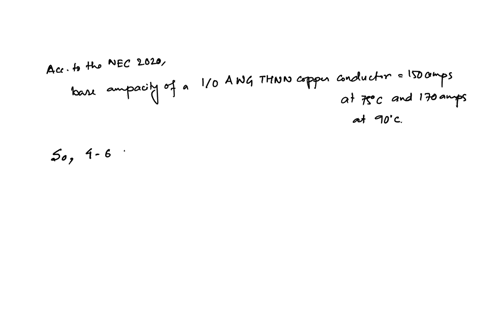 Acc. to the NEC 2020,
base ampacity of a 1/0 AWG THNN copper conductor = 150 amps
at 75°C and 170 amps
at 90°C.
So, 4-6